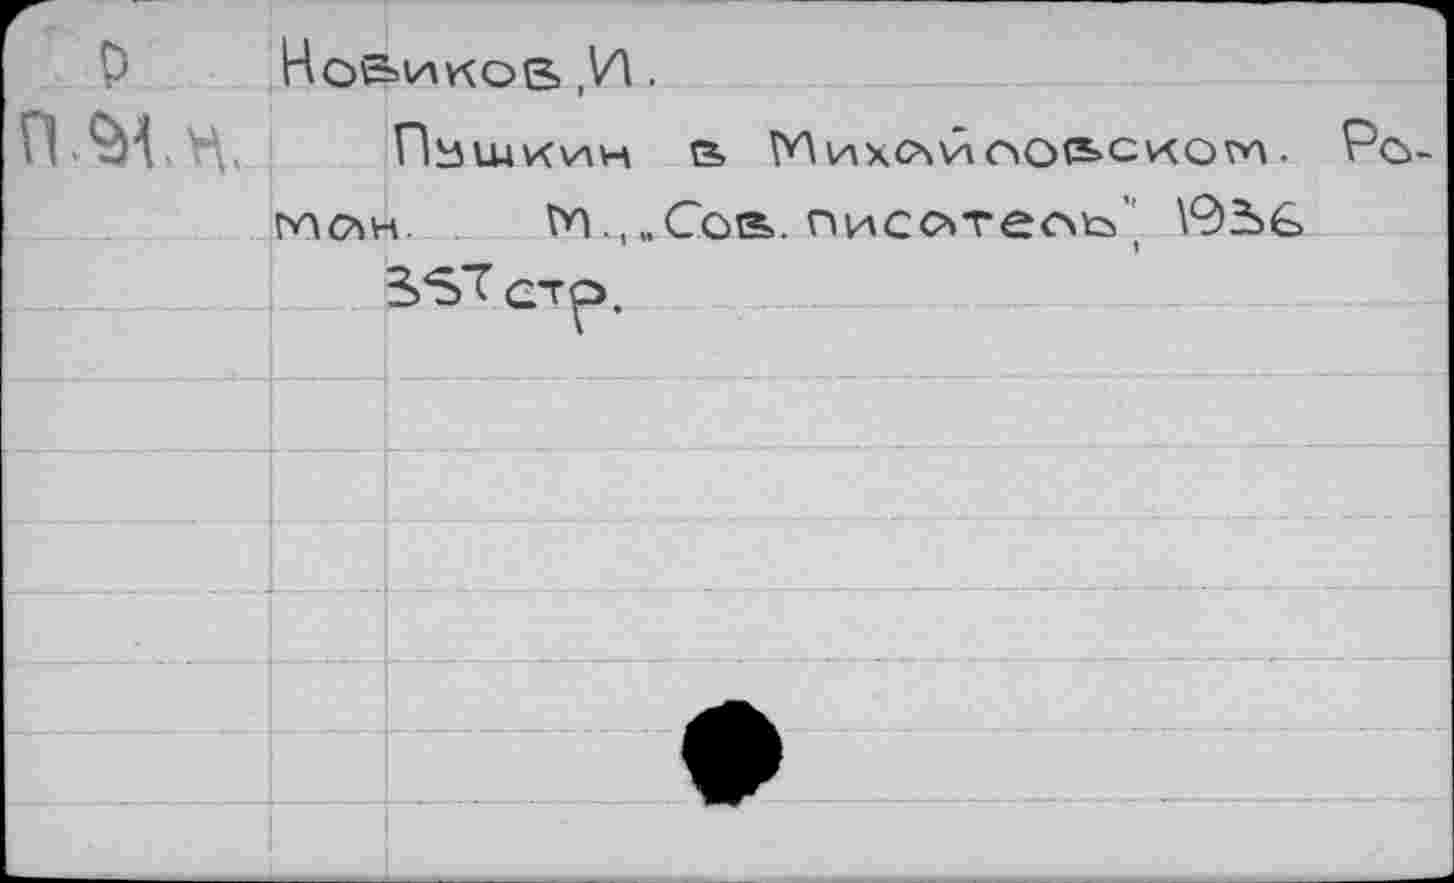 Р Новиков, И.
П. Н. Пушкин в Михайловском. Ро-
ман. М., „Сов. писатель", 1936
357 стр.